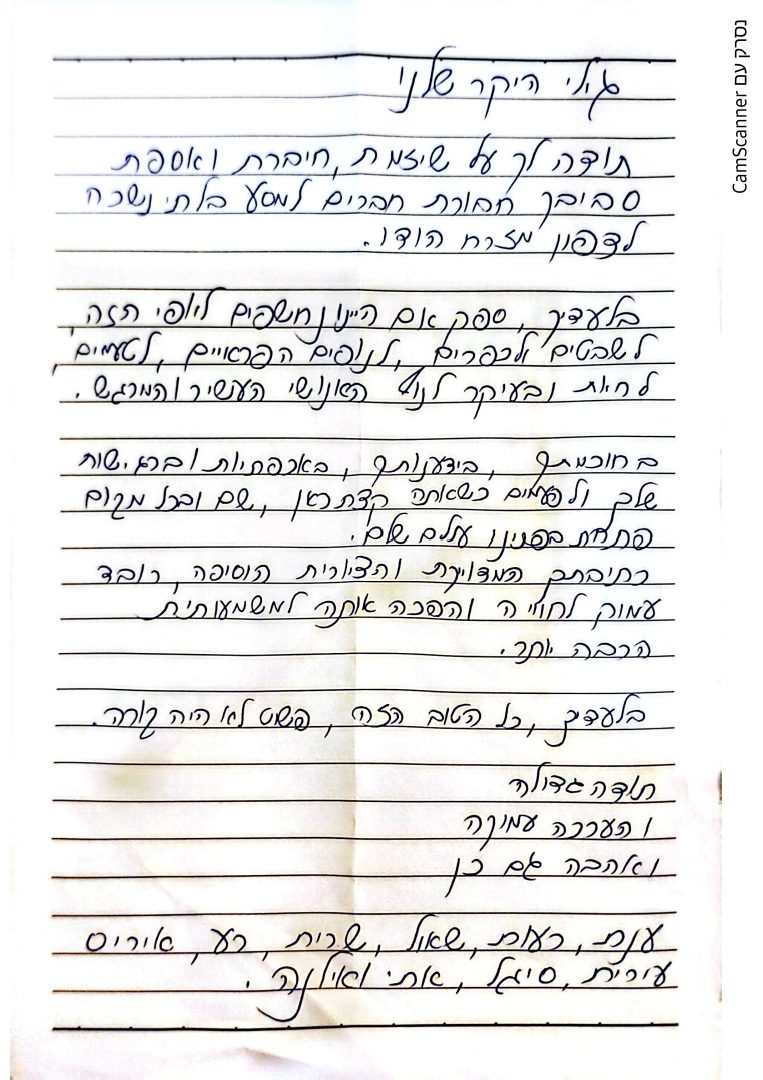 גילי היקר שלנו
תודה לך על שיזמת, חיברת ואספת
סביבך חבורת חברים למסע בלתי נשכח
לצפון מזרח הודו.
בלעדיך, ספק אם היינו נחשפים ליופי הזה,
לשבטים ולכפרים, לנופים הפראיים, לטעמים,
לחאות ובעיקר לנוף האנושי העשיר והמרגש.
בחוכמתך, בידענותך, באכפתיות וברגישות
שלך ולפעמים כשאתה קצת כאן, שם ובכל מקום
פתחת בפנינו עולם שלם.
כתיבתך המדויקת והציורית הוסיפה, רובד
עמוק לחוויה והפכה אותה למשמעותית
הרבה יותר.
בלעדיך, כל הטוב הזה, פשוט לא היה קורה.
תודה גדולה
והערכה עמוקה
ואהבה גם כן
ענת, רעות, שאול, שרית, רע, איריס
עירית, סיגל, אתי ואילנה.
נסרק עם CamScanner